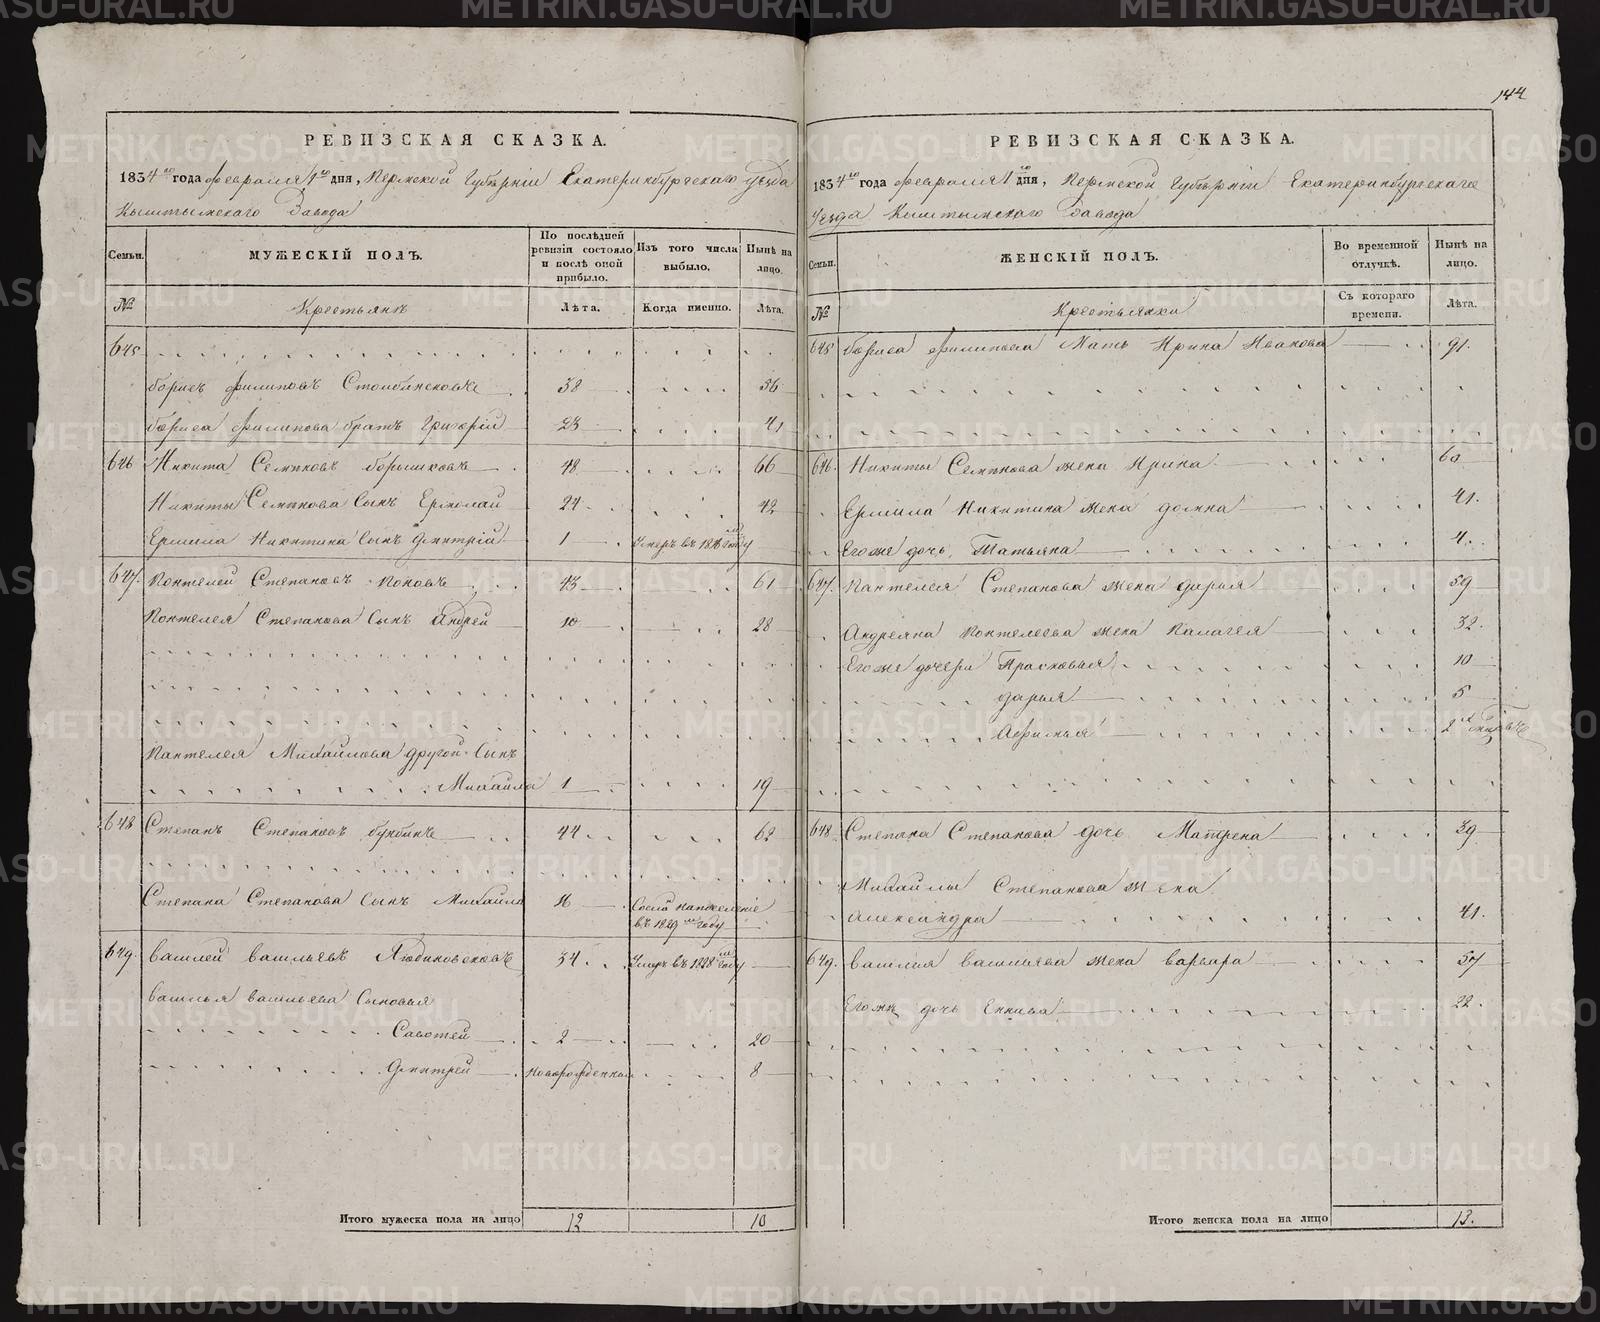 144
РЕВИЗСКАЯ СКАЗКА.
1834го года февраля 1го дня, Пермской Губерніи Екатеринбургскаго уезда
Кыштымскаго Завода
Семьи. МУЖЕСКІЙ ПОЛЪ. По послѣдней ревизіи состояло и послѣ оной прибыло. Изъ того числа выбыло. Нынѣ на лицо.
№ Крестьянъ Лѣта. Когда именно. Лѣта.
645
Борисъ Филиповъ 38 56
Бориса Филипова братъ Григорій 23 41
646 Никита Семеновъ Борышковъ 48 66
Никиты Семенова Сынъ Ермолай 24 42
Ермила Никитина Сынъ Дмитрій 1 Умеръ въ 1816м году
647 Понтелей Степановъ Поповъ 43 61
Понтелея Степанова Сынъ Андрей 10 28
Пантелея Михайлова другой Сынъ
Михайла 1 19
648 Степанъ Степановъ 44 62
Степана Степанова Сынъ Михайло 16 Сосланъ на поселеніе
въ 1829м году
649 Василей Васильевъ 34 Умеръ въ 1828м году
Василья Васильева Сыновья
Савотей 2 20
Дмитрей новорожденный 8
Итого мужеска пола на лицо 12 10
РЕВИЗСКАЯ СКАЗКА.
1834го года февраля 1го дня, Пермской Губерніи Екатеринбургскаго
Уезда Кыштымскаго Завода
Семьи. ЖЕНСКІЙ ПОЛЪ. Во временной отлучкѣ. Нынѣ на лицо.
№ Крестьянки Съ котораго времени. Лѣта.
645 Бориса Филипова Мать Ирина Иванова 91.
646. Никиты Семенова жена Ирина 60
Ермила Никитина жена Домна 41.
Его же дочь Татьяна 4.
647. Пантелея Степанова жена Дарья 59
Андреяна Понтелеева жена Палагея 32.
Его же дочери Прасковья 10
Дарья 5
Афимья 2
648 Степана Степанова дочь Матрена 39
Михайлы Степанова жена
Александра 41.
649. Василия Васильева жена Варвара 57
Его же дочь 22.
Итого женска пола на лицо 13.
METRIKI.GASO-URAL.RU